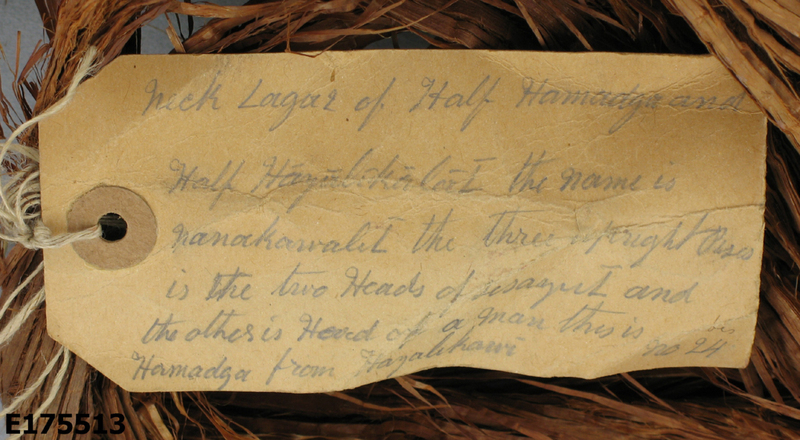 neck Lagaz of Half Hamadga and
Half the name is
nanakawalit the three upright Pises
is the two Heads of and
the other is Head of a man this is
Hamadga from no 24
E175513